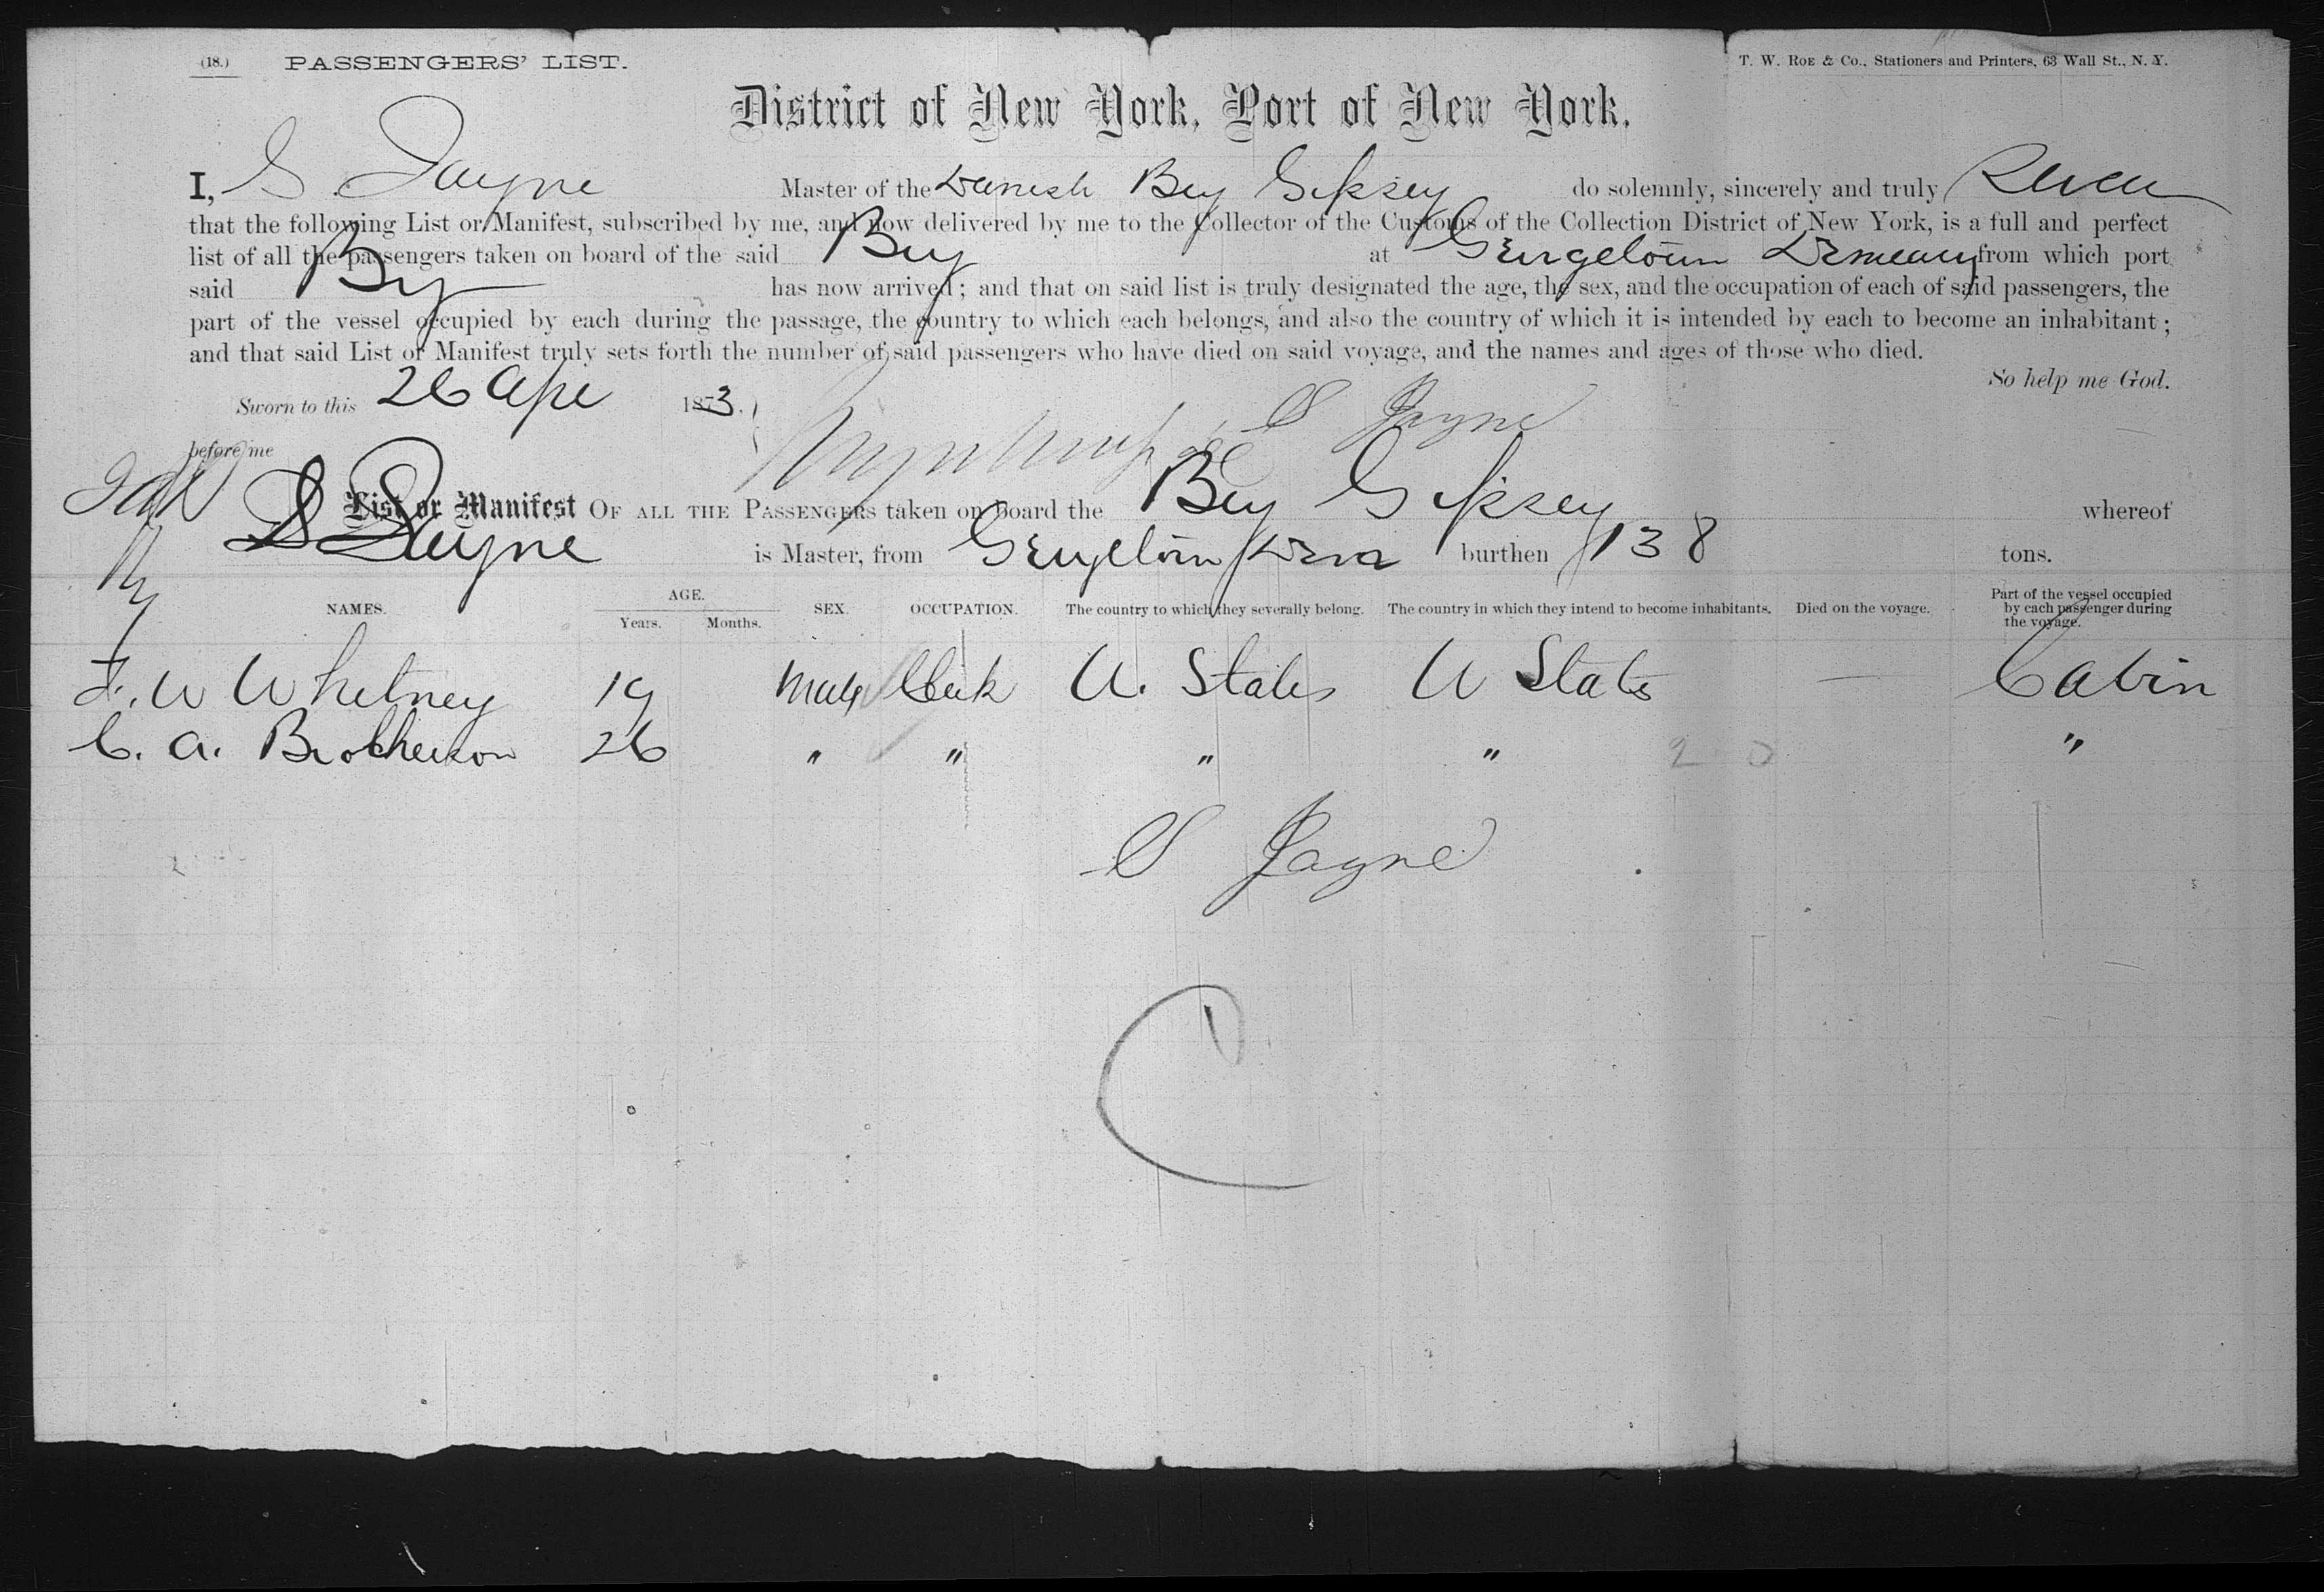 (18.) PASSENGERS' LIST. T. W. ROE & Co., Stationers and Printers, 63 Wall St., N. Y.
District of New York, Port of New York.
I, S. Jayne Master of the Danish Brig Gipsey do solemnly, sincerely and truly
that the following List or Manifest, subscribed by me, and now delivered by me to the Collector of the Customs of the Collection District of New York, is a full and perfect
list of all the passengers taken on board of the said Brig at Georgetown Demerary from which port
said Brig has now arrived; and that on said list is truly designated the age, the sex, and the occupation of each of said passengers, the
part of the vessel occupied by each during the passage, the country to which each belongs, and also the country of which it is intended by each to become an inhabitant;
and that said List or Manifest truly sets forth the number of said passengers who have died on said voyage, and the names and ages of those who died.
So help me God.
Sworn to this 26 Apl 1873.
S Jayne
before me
List or Manifest OF ALL THE PASSENGERS taken on board the Brig Gipsey whereof
S Jayne is Master, from Georgetown Dema burthen 138 tons.
NAMES. AGE. Years. Months. SEX. OCCUPATION. The country to which they severally belong. The country in which they intend to become inhabitants. Died on the voyage. Part of the vessel occupied by each passenger during the voyage.
F. W Whitney 19 Male Clerk U. States U States — Cabin
C. A. Brotherson 26 " " " " 2 0 "
S Jayne